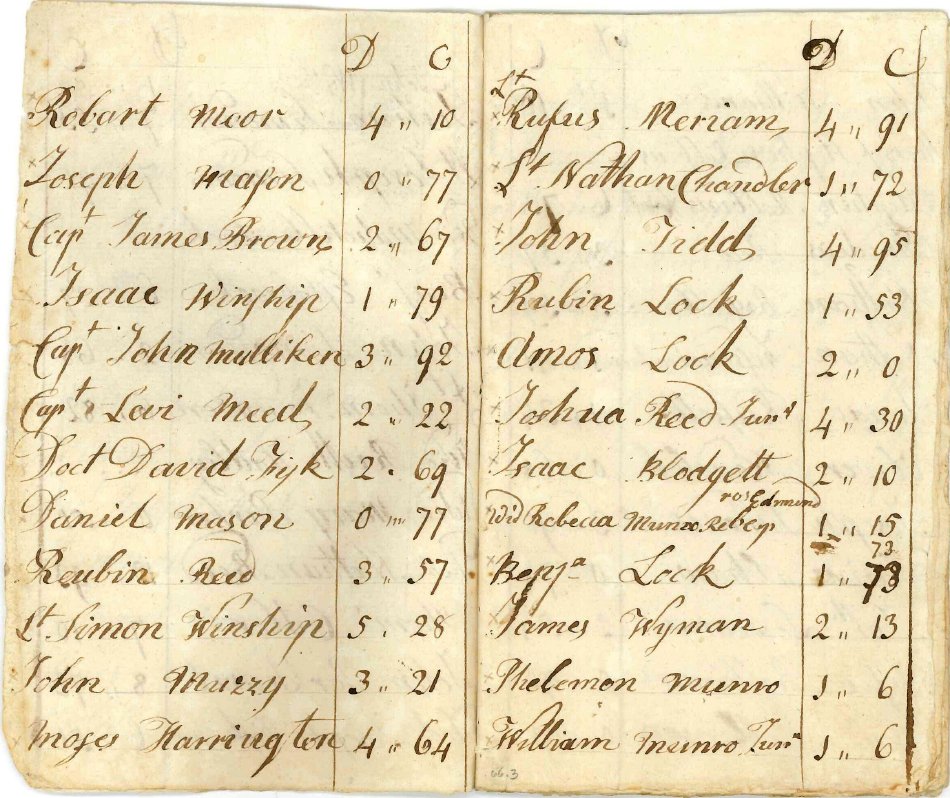 D C
Robart Moor 4 " 10
Joseph Mason 0 " 77
Capt James Brown 2 " 67
Isaac Winship 1 " 79
Capt John Mulliken 3 " 92
Capt Levi Meed 2 " 22
Doct David Fisk 2 " 69
Daniel Mason 0 " 77
Reubin Reed 3 " 57
Lt Simon Winship 5 " 28
John Muzzy 3 " 21
Moses Harrington 4 " 64
D C
Lt
Rufus Meriam 4 " 91
Lt Nathan Chandler 1 " 72
John Tidd 4 " 95
Rubin Lock 1 " 53
Amos Lock 2 " 0
Joshua Reed Junr 4 " 30
Isaac Blodgett 2 " 10
Edmund
Wid Rebecca Munro 1 " 15
73
Benja Lock 1 " 73
James Wyman 2 " 13
Phelemon Munro 1 " 6
William Munro Junr 1 " 6
66.3